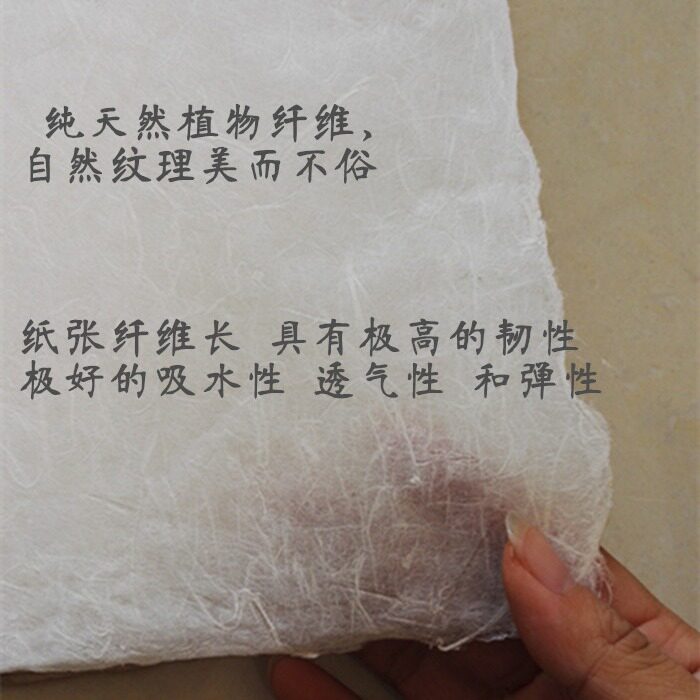 纯天然植物纤维，
自然纹理美而不俗
纸张纤维长 具有极高的韧性
极好的吸水性 透气性 和弹性